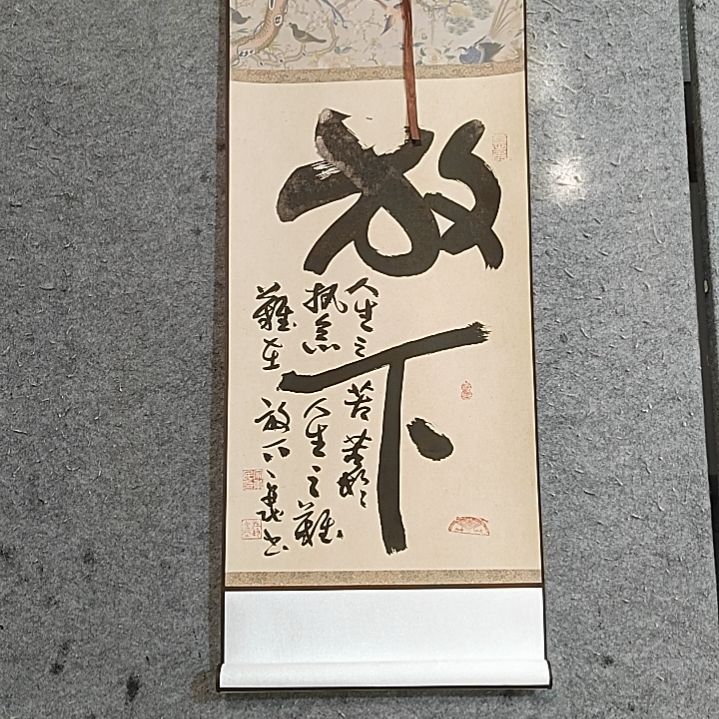 放下
人生之苦苦於
執念人生之難
難在放下
書